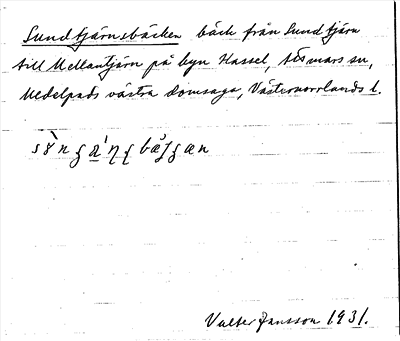 Sundtjärnsbäcken bäck från Sundtjärn
till Mellantjärn på byn Hassel, Attmars sn,
Medelpads västra domsaga, Västernorrlands l.
Valter Jansson 1931.